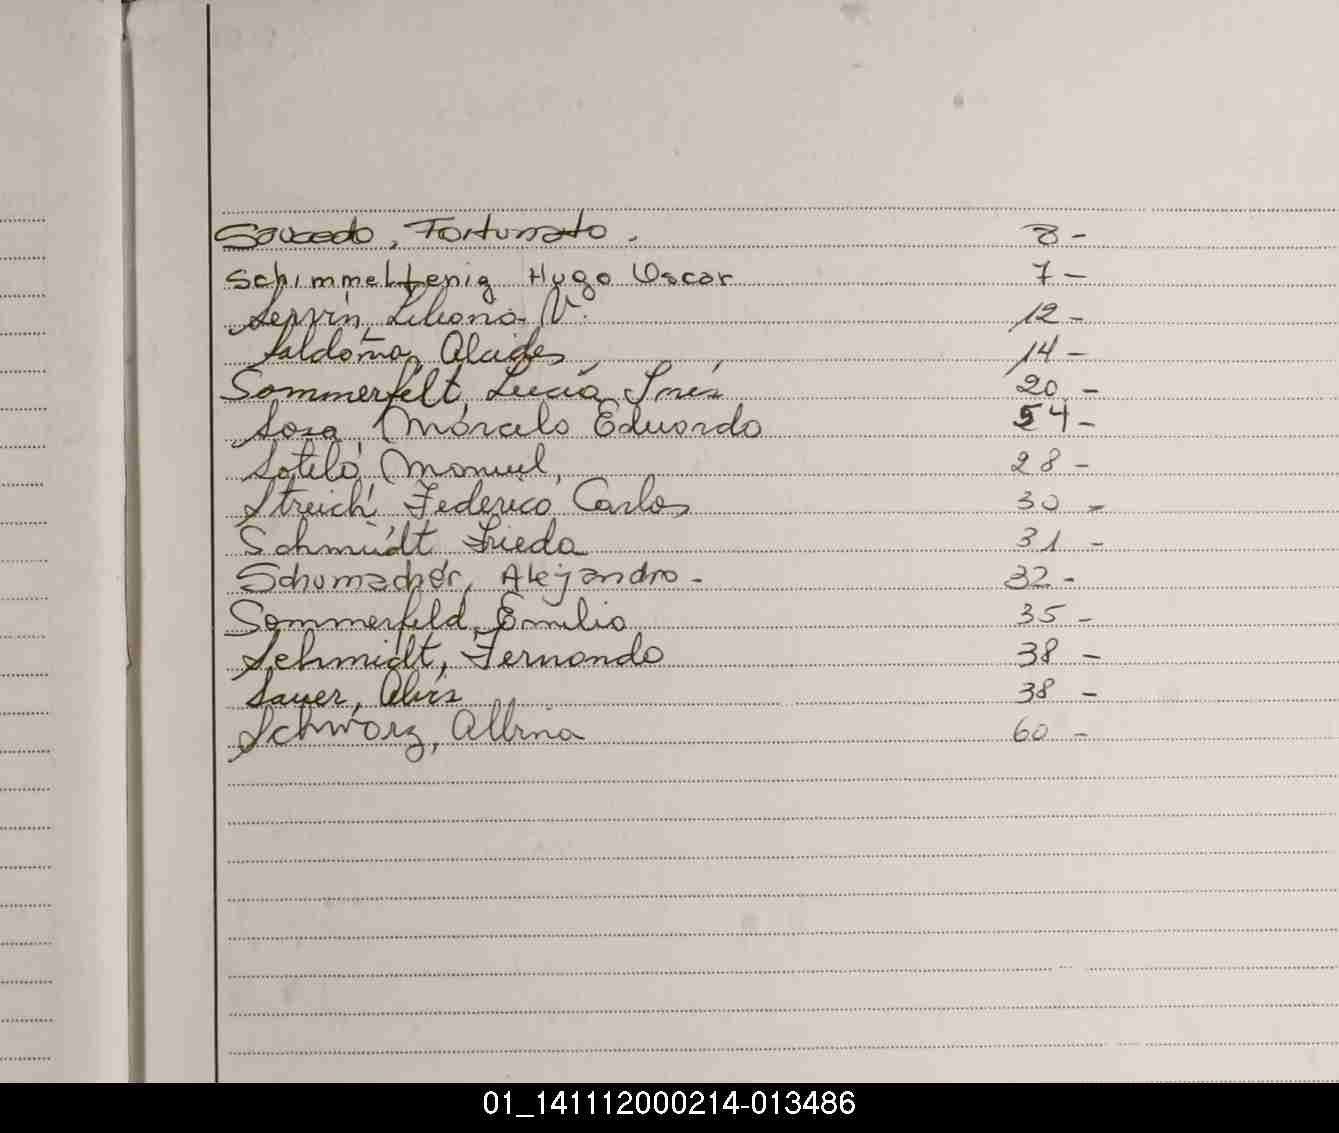 Saucedo, Fortunato. 8 -
Schimmelfenig Hugo Oscar 7 -
Servín, Liliana V. 12 -
Saldaña, Alcides 14 -
Sommerfelt, Lucía Inés 20 -
Sosa, Marcelo Eduardo 54 -
Sotelo, Manuel, 28 -
Streich, Federico Carlos 30 -
Schmidt Frieda 31 -
Schumacher, Alejandro - 32 -
Sommerfeld, Emilio 35 -
Schmidt, Fernando 38 -
Sauer, 38 -
Schwarz, Albina 60 -
01_141112000214-013486